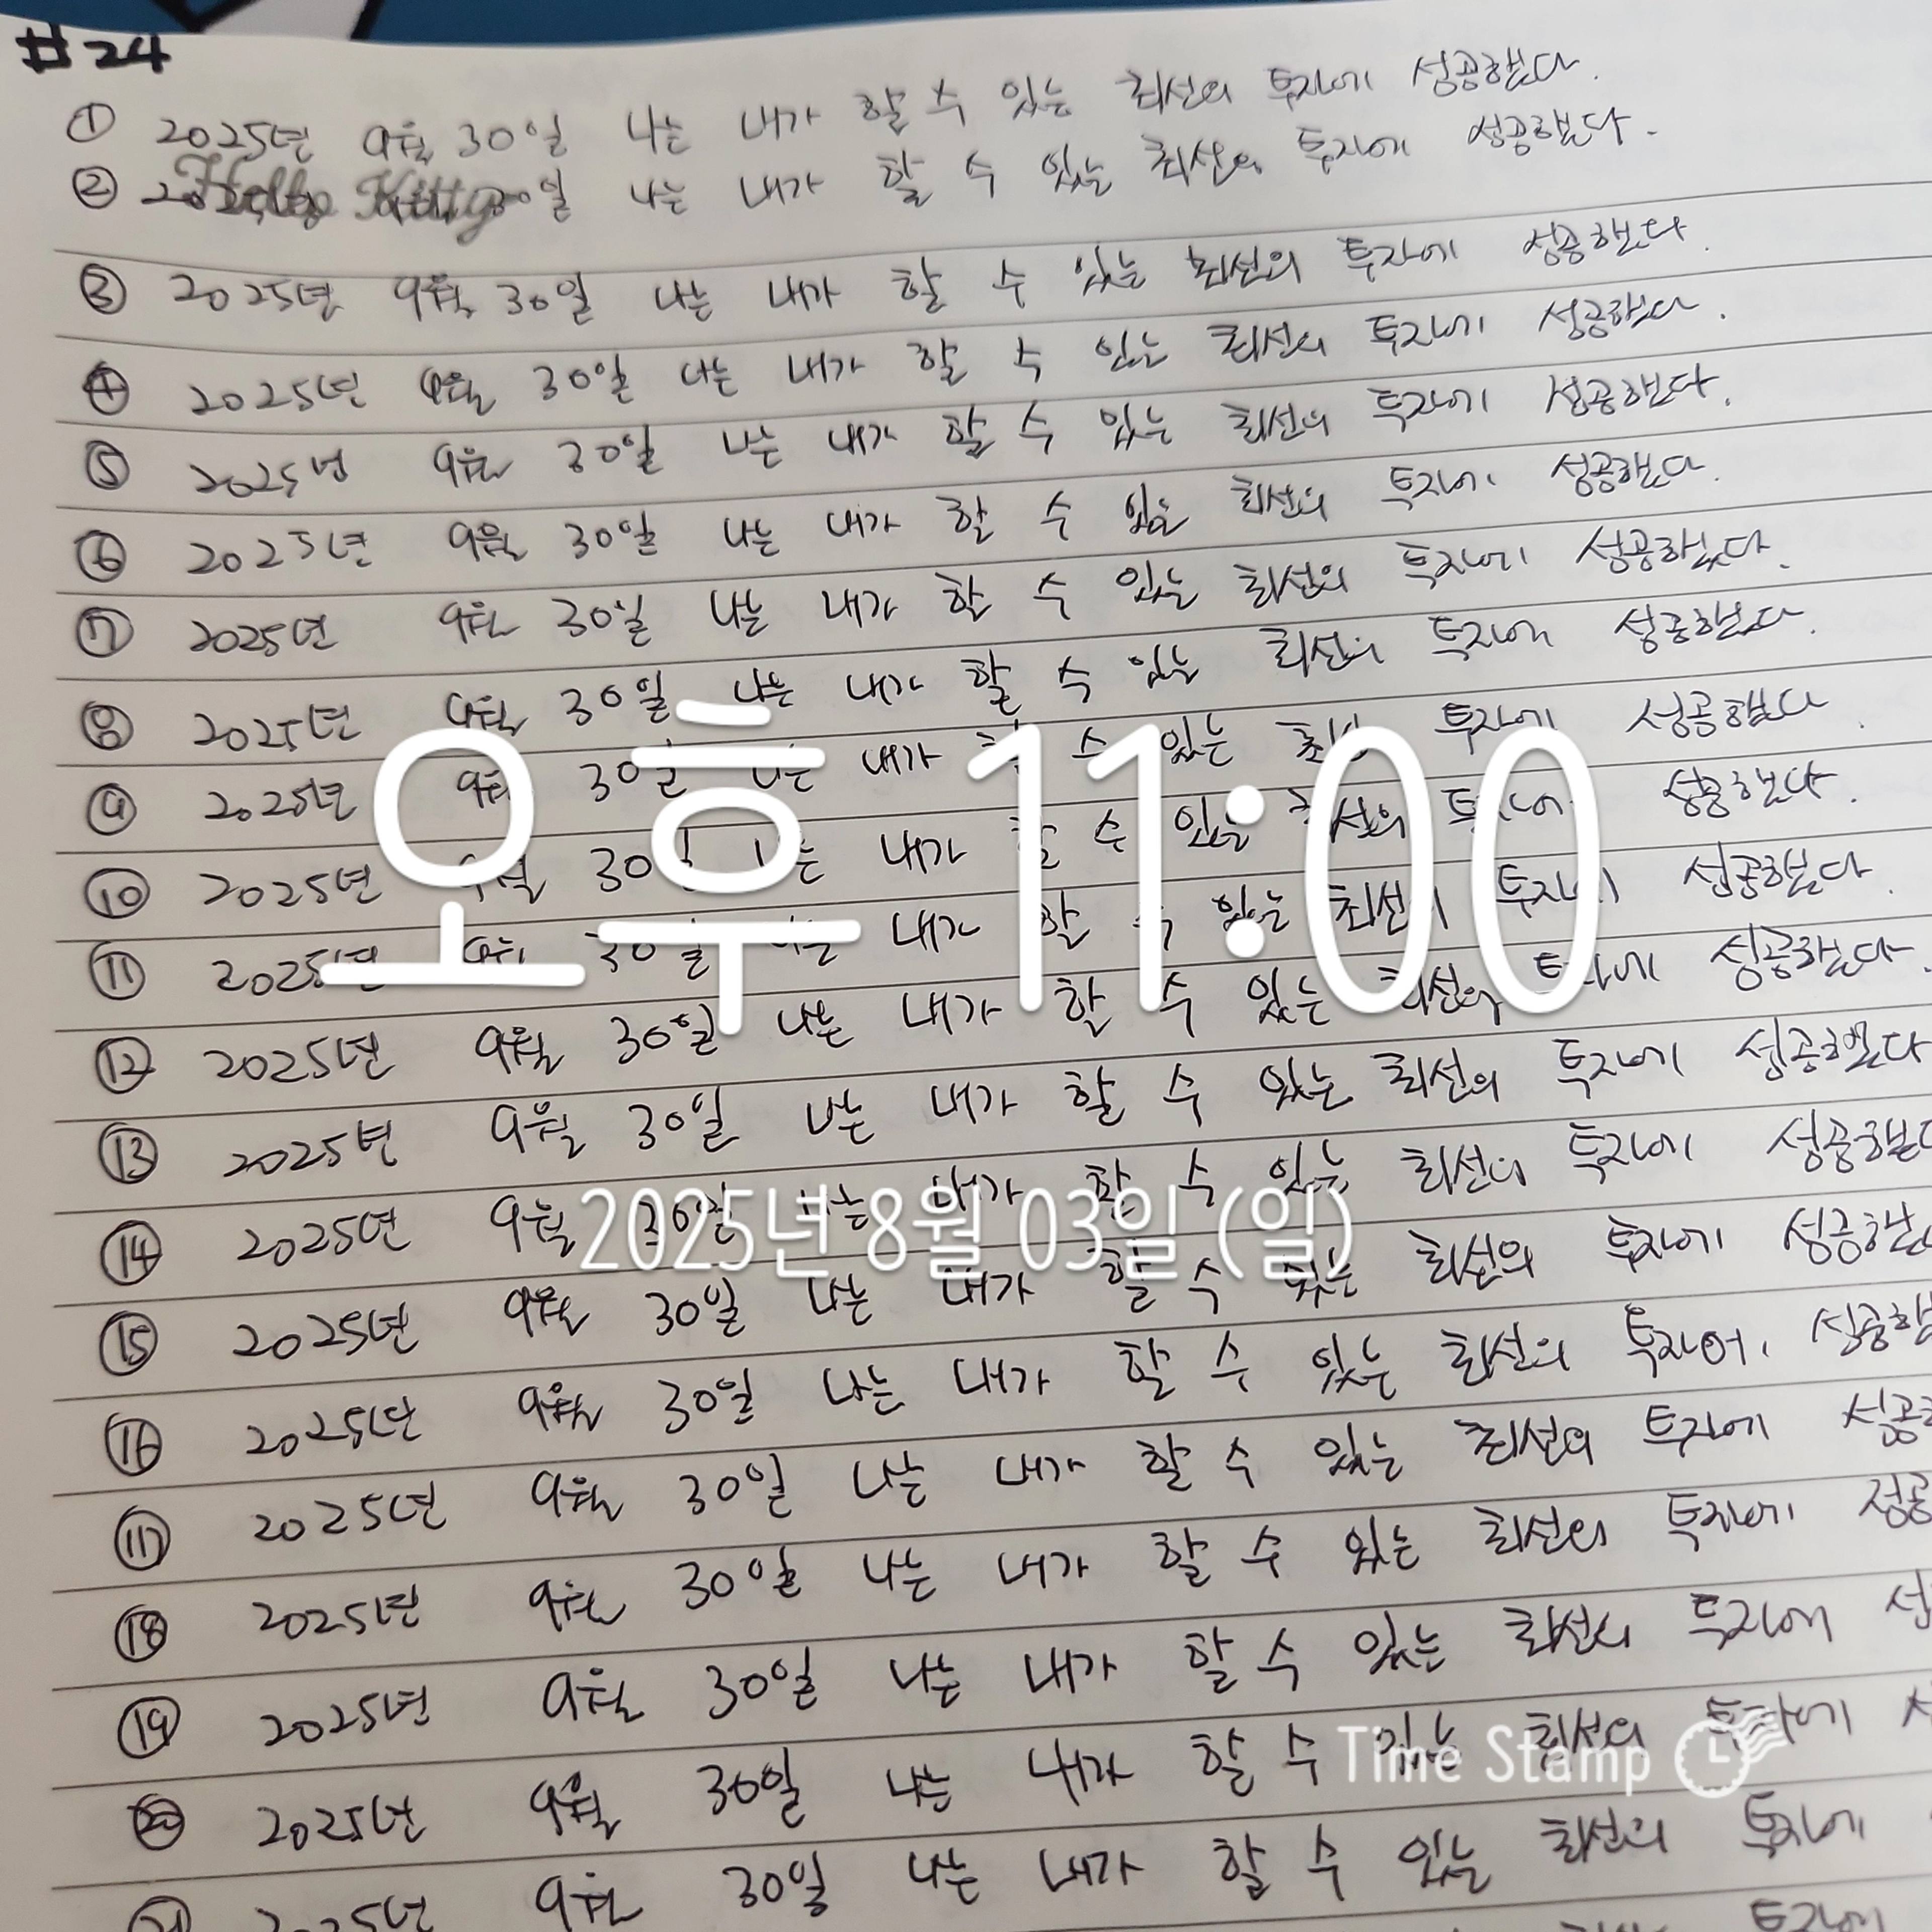 #24
① 2025년 9월 30일 나는 내가 할 수 있는 최선의 투자에 성공했다.
② 30일 나는 내가 할 수 있는 최선의 투자에 성공했다.
Hello Kitty
③ 2025년 9월 30일 나는 내가 할 수 있는 최선의 투자에 성공했다.
④ 2025년 9월 30일 나는 내가 할 수 있는 최선의 투자에 성공했다.
⑤ 2025년 9월 30일 나는 내가 할 수 있는 최선의 투자에 성공했다.
⑥ 2025년 9월 30일 나는 내가 할 수 있는 최선의 투자에 성공했다.
⑦ 2025년 9월 30일 나는 내가 할 수 있는 최선의 투자에 성공했다.
⑧ 2025년 9월 30일 나는 내가 할 수 있는 최선의 투자에 성공했다.
⑨ 2025년 9월 30일 나는 내가 할 수 있는 투자에 성공했다.
오후 11:00
⑩ 2025년 9월 30일 나는 내가 할 수 있는 최선의 투자에 성공했다.
⑪ 2025년 9월 30일 나는 내가 할 수 있는 최선의 투자에 성공했다.
⑫ 2025년 9월 30일 나는 내가 할 수 있는 최선의 투자에 성공했다.
⑬ 2025년 9월 30일 나는 내가 할 수 있는 최선의 투자에 성공했다
⑭ 2025년 9월 30일 나는 내가 할 수 있는 최선의 투자에 성공했다
2025년 8월 03일 (일)
⑮ 2025년 9월 30일 나는 내가 할 수 있는 최선의 투자에 성공했
⑯ 2025년 9월 30일 나는 내가 할 수 있는 최선의 투자에 성공했
⑰ 2025년 9월 30일 나는 내가 할 수 있는 최선의 투자에 성공
⑱ 2025년 9월 30일 나는 내가 할 수 있는 최선의 투자에 성공
⑲ 2025년 9월 30일 나는 내가 할 수 있는 최선의 투자에 성
Time Stamp
⑳ 2025년 9월 30일 나는 내가 할 수 있는 최선의 투자에
㉑ 2025년 9월 30일 나는 내가 할 수 있는 최선의 투자에
투자에